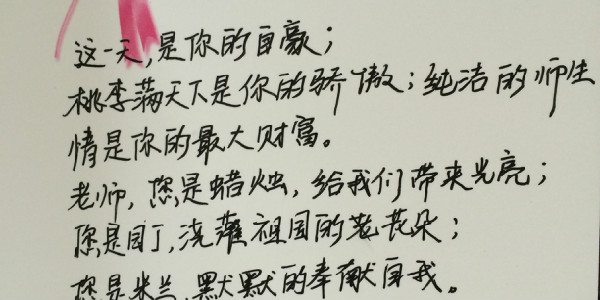 这一天，是你的自豪；
桃李满天下是你的骄傲；纯洁的师生
情是你的最大财富。
老师，您是蜡烛，给我们带来光亮；
您是园丁，浇灌祖国的花朵；
您是米兰，默默的奉献自我。